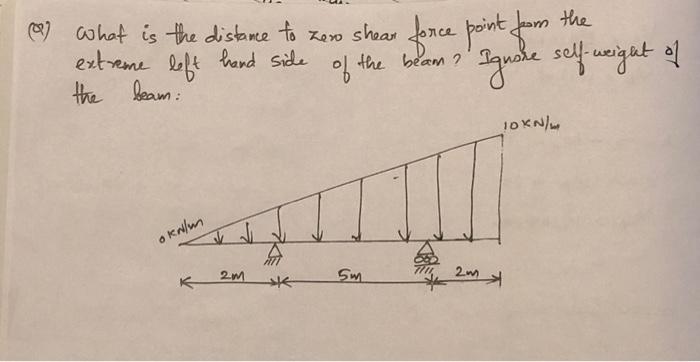 (Q) What is the distance to zero shear force point from the
extreme left hand side of the beam? Ignore self-weight of
the beam:
10 KN/m
0 KN/m
2m 5m 2m